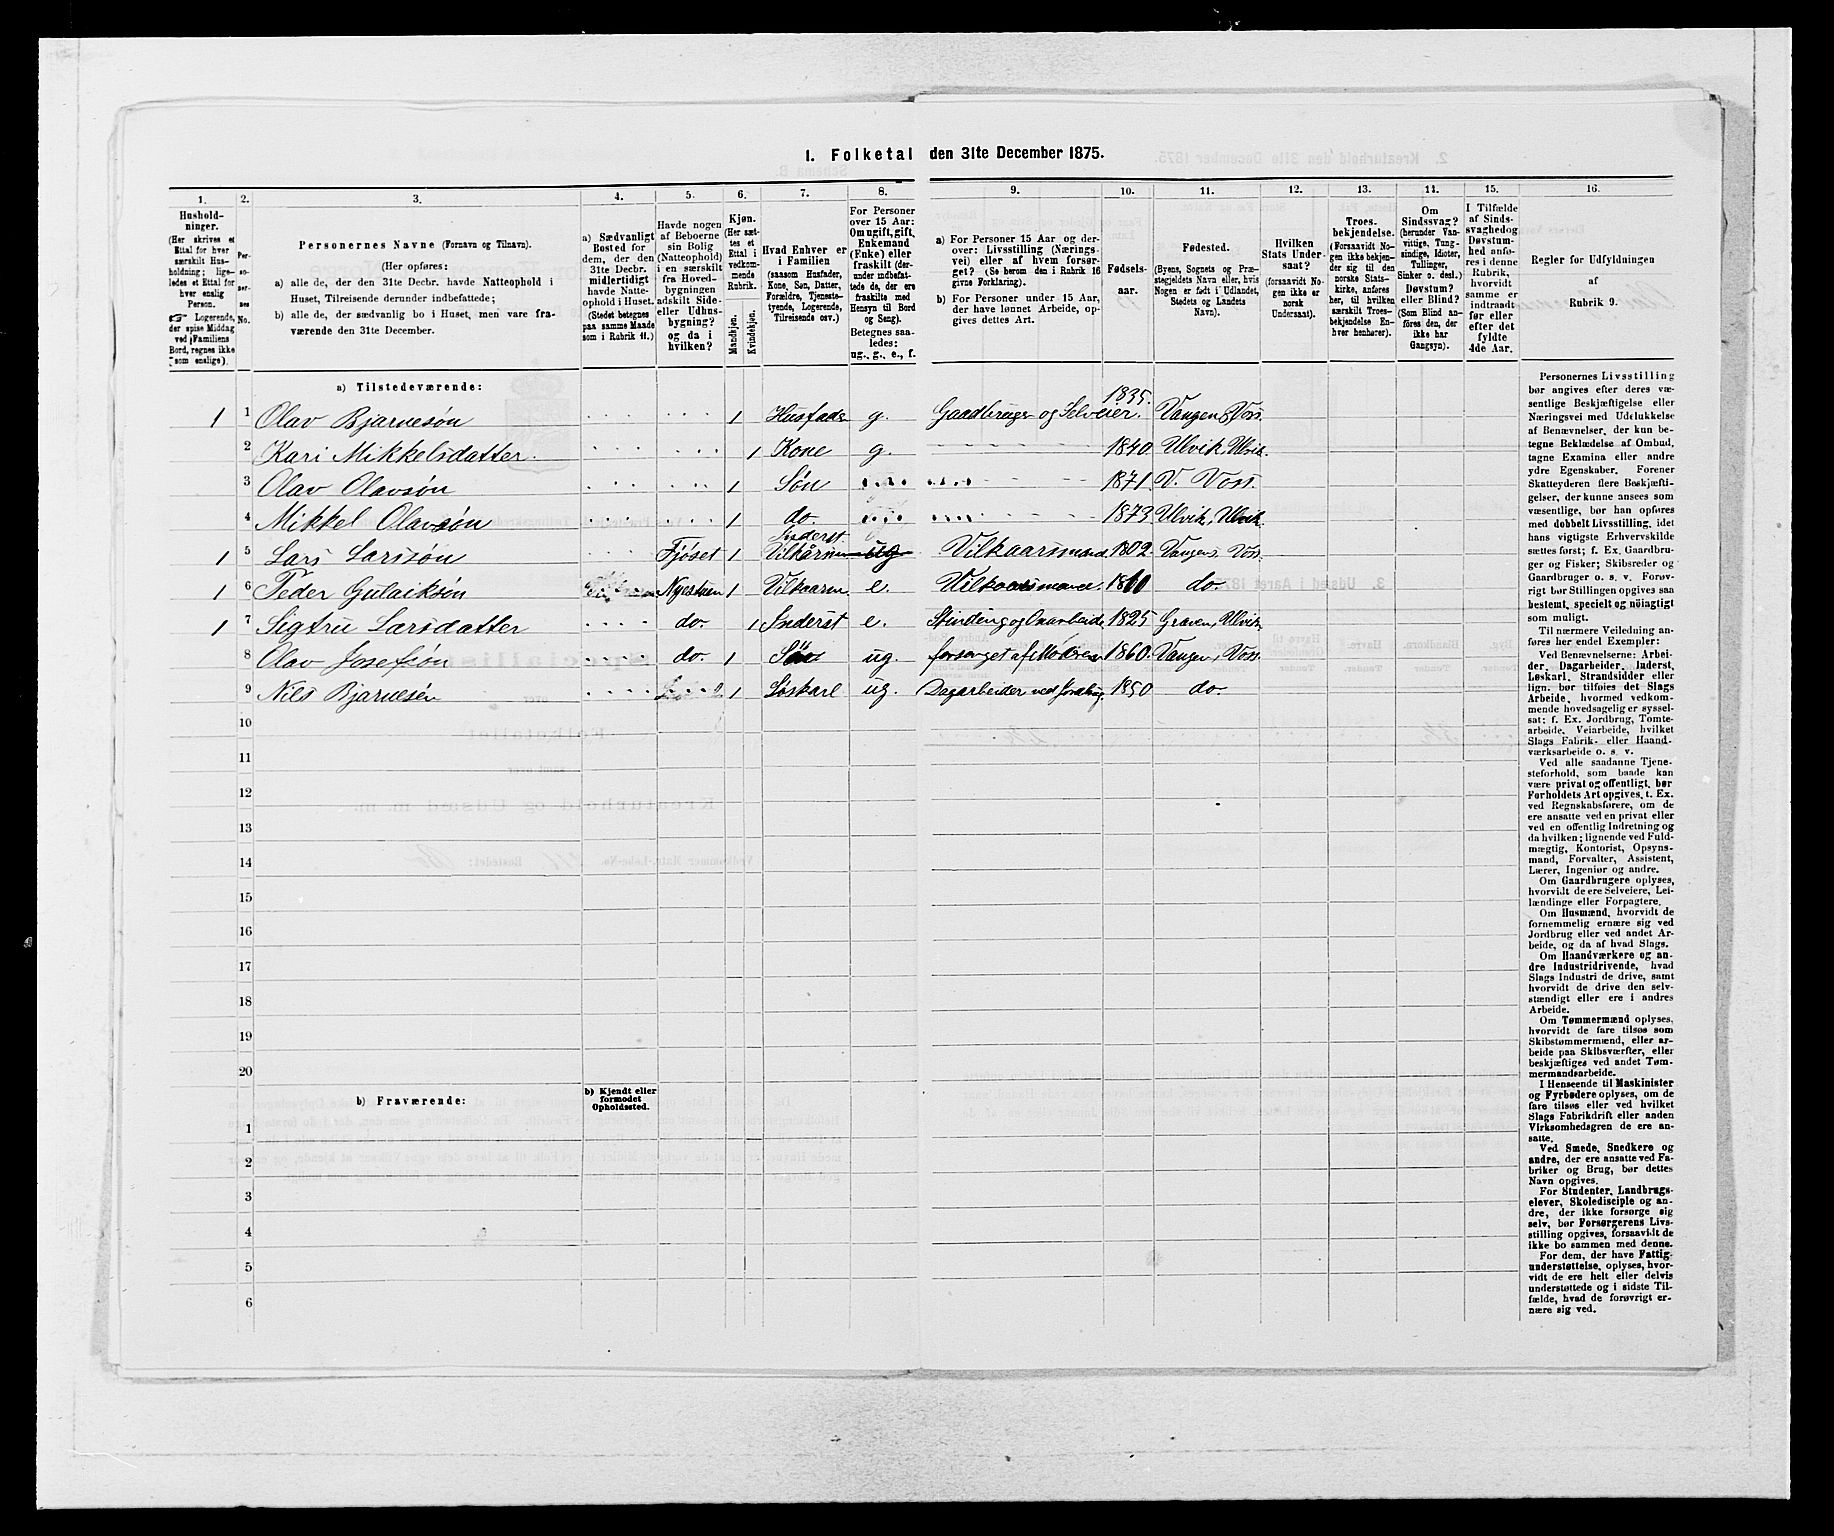 I. Folketal den 31te December 1875.
1. 2. 3. 4. 5. 6. 7. 8. 9. 10. 11. 12. 13. 14. 15. 16.
Hushold-
ninger.
(Her skrives et
Ettal for hver
særskilt Hus-
holdning; lige-
ledes et Ettal for
hver enslig
Person.
☞ Logerende,
der spise Middag
ved Familiens
Bord, regnes ikke
som enslige).
Per-
so-
ner-
nes
No.
Personernes Navne (Fornavn og Tilnavn).
(Her opføres:
a) alle de, der den 31te Decbr. havde Natteophold i
Huset, Tilreisende derunder indbefattede;
b) alle de, der sædvanlig bo i Huset, men vare fra-
værende den 31te December.
a) Sædvanligt
Bosted for
dem, der den
31te Decbr.
midlertidigt
havde Natte-
ophold i Huset.
(Stedet betegnes
paa samme Maade
som i Rubrik 11.)
Havde nogen
af Beboerne
sin Bolig
(Natteophold)
i en særskilt
fra Hoved-
bygningen
adskilt Side-
eller Udhus-
bygning?
og da i
hvilken?
Kjøn.
(Her sæt-
tes et
Ettal i
vedkom-
mende
Rubrik.
Mandkjøn.
Kvindekjøn.
Hvad Enhver er
i Familien
(saasom Husfader,
Kone, Søn, Datter,
Forældre, Tjeneste-
tyende, Logerende,
Tilreisende osv.)
For Personer
over 15 Aar:
Om ugift, gift,
Enkemand
(Enke) eller
fraskilt (der-
under indbefat-
tede de, der ere
fraskilte med
Hensyn til Bord
og Seng).
Betegnes saa-
ledes:
ug., g., e., f.
a) For Personer 15 Aar og der-
over: Livsstilling (Nærings-
vei) eller af hvem forsør-
get? (Se herom den i Rubrik 16
givne Forklaring).
b) For Personer under 15 Aar,
der have lønnet Arbeide, op-
gives dettes Art.
Fødsels-
aar.
Fødested.
(Byens, Sognets og Præ-
stegjeldets Navn eller, hvis
Nogen er født i Udlandet,
Stedets og Landets
Navn).
Hvilken
Stats Under-
saat?
(forsaavidt No-
gen ikke er
norsk
Undersaat).
Troes-
bekjendelse.
(Forsaavidt No-
gen ikke bekjen-
der sig til den
norske Stats-
kirke, anføres
her, til hvilken
særskilt Troes-
bekjendelse En-
hver henhører).
Om
Sindssvag?
(herunder Van-
vittige, Tung-
sindige, Idioter,
Tullinger,
Sinker o. desl.)
Døvstum?
eller Blind?
(Som Blind an-
føres den, der
ikke har
Gangsyn).
I Tilfælde
af Sinds-
svaghed og
Døvstum-
hed anfø-
res i denne
Rubrik,
hvorvidt
samme er
indtraadt
før eller
efter det
fyldte
4de Aar.
Regler for Udfyldningen
af
Rubrik 9.
a) Tilstedeværende:
1 1 Olav Bjarnesøn 1 Husfader g. Gaardbruger og Selveier. 1835. Vangen, Voss
2 Kari Mikkelsdatter. 1 Kone g. 1840. Ulvik, Ulvik.
3 Olav Olavsøn 1 Søn 1871. V. Voss.
4 Mikkel Olavsøn 1 do. 1873. Ulvik, Ulvik.
1 5 Lars Larssøn Fjøset 1 Inderst. Vilkårm ug Vilkaarsmand. 1802. Vangen, Voss.
1 6 Peder Gulaiksøn Nystuen 1 Vilkaarm e. Vilkaarsmand. 1810 do.
1 7 Sigtru Larsdatter do. 1 Inderst e. 1825 Graven, Ulvik.
8 Olav Josefsøn do. 1 Søn ug. forsørget af Moderen 1860. Vangen, Voss.
9 Nils Bjarnesøn 1 Løskarl ug. Dagarbeider ved Jordbrug. 1850 do.
10
11
12
13
14
15
16
17
18
19
20
b) Fraværende:
b) Kjendt eller
formodet
Opholdssted.
1
2
3
4
5
6
Personernes Livsstilling
bør angives efter deres væ-
sentlige Beskjæftigelse eller
Næringsvei med Udelukkelse
af Benævnelser, der kun be-
tegne Beklædelse af Ombud,
tagne Examina eller andre
ydre Egenskaber. Forener
Skatteyderen flere Beskjæfti-
gelser, der kunne ansees som
væsentlige, bør han opføres
med dobbelt Livsstilling, idet
hans vigtigste Erhvervskilde
sættes først; f. Ex. Gaardbru-
ger og Fisker; Skibsreder og
Gaardbruger o. s. v. Forøv-
rigt bør Stillingen opgives saa
bestemt, specielt og nöiagtigt
som muligt.
Til nærmere Veiledning an-
føres her endel Exempler:
Ved Benævnelserne: Arbei-
der, Dagarbeider, Inderst,
Løskarl, Strandsidder eller
lign. bør tilføies det Slags
Arbeide, hvormed vedkom-
mende hovedsagelig er syssel-
sat; f. Ex. Jordbrug, Tomte-
arbeide, Veiarbeide, hvilket
Slags Fabrik- eller Haand-
værksarbeide o. s. v.
Ved alle saadanne Tjene-
steforhold, som baade kan
være privat og offentligt, bør
Forholdets Art opgives, t. Ex.
ved Regnskabsførere, om de
ere ansatte ved en privat eller
ved en offentlig Indretning og
da hvilken; lignende ved Fuld-
mægtig, Kontorist, Opsyns-
mand, Forvalter, Assistent,
Lærer, Ingeniør og andre.
Om Gaardbrugere oplyses,
hvorvidt de ere Selveiere, Lei-
lændinge eller Forpagtere.
Om Husmænd, hvorvidt de
fornemmelig ernære sig ved
Jordbrug eller ved andet Ar-
beide, og da af hvad Slags.
Om Haandværkere og an-
dre Industridrivende, hvad
Slags Industri de drive, samt
hvorvidt de drive den selv-
stændigt eller ere i andres
Arbeide.
Om Tømmermænd oplyses,
hvorvidt de fare tilsøs som
Skibstømmermænd, eller ar-
beide paa Skibsværfter, eller
beskjæftiges ved andet Tøm-
mermandsarbeide.
I Henseende til Maskinister
og Fyrbødere oplyses, om de
fare tilsøs eller ved hvilket
Slags Fabrikdrift eller anden
Virksomhedsgren de ere an-
satte.
Ved Smede, Snedkere og
andre, der ere ansatte ved Fa-
briker og Brug, bør dettes
Navn opgives.
For Studenter, Landbrugs-
elever, Skoledisciple og an-
dre, der ikke forsørge sig
selv, bør Forsørgerens Livs-
stilling opgives, forsaavidt de
ikke bo sammen med denne.
For dem, der have Fattig-
understøttelse, oplyses, hvor-
vidt de ere helt eller delvis
understøttede og i sidste Til-
fælde, hvad de forøvrigt er-
nære sig ved.